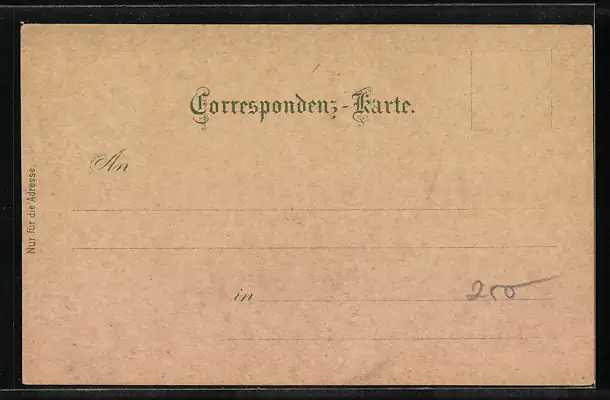 Correspondenz-Karte.
An
Nur für die Adresse.
in
250